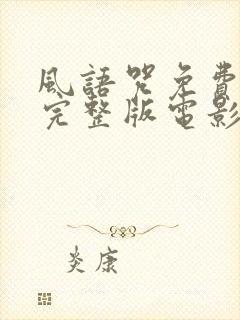 風語咒免費
完整版電影
炎康